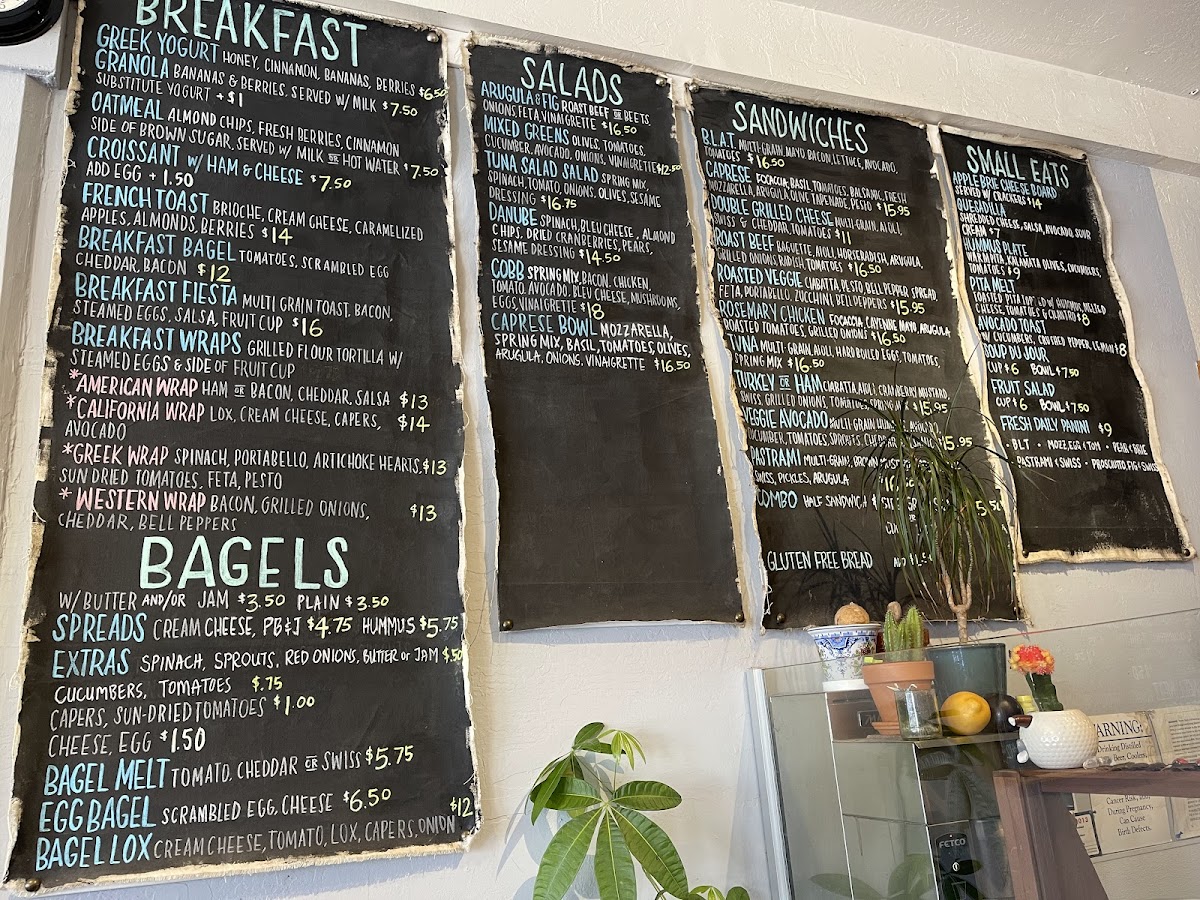 BREAKFAST
GREEK YOGURT HONEY, CINNAMON, BANANAS, BERRIES $6.50
GRANOLA BANANAS & BERRIES. SERVED W/ MILK $7.50
SUBSTITUTE YOGURT +$1
OATMEAL ALMOND CHIPS, FRESH BERRIES, CINNAMON
SIDE OF BROWN SUGAR, SERVED W/ MILK OR HOT WATER $7.50
CROISSANT W/ HAM & CHEESE $7.50
ADD EGG + 1.50
FRENCH TOAST BRIOCHE, CREAM CHEESE, CARAMELIZED
APPLES, ALMONDS, BERRIES $14
BREAKFAST BAGEL TOMATOES, SCRAMBLED EGG
CHEDDAR, BACON $12
BREAKFAST FIESTA MULTI GRAIN TOAST, BACON,
STEAMED EGGS, SALSA, FRUIT CUP $16
BREAKFAST WRAPS GRILLED FLOUR TORTILLA W/
STEAMED EGGS & SIDE OF FRUIT CUP
*AMERICAN WRAP HAM OR BACON, CHEDDAR, SALSA $13
*CALIFORNIA WRAP LOX, CREAM CHEESE, CAPERS, $14
AVOCADO
*GREEK WRAP SPINACH, PORTABELLO, ARTICHOKE HEARTS, $13
SUN DRIED TOMATOES, FETA, PESTO
*WESTERN WRAP BACON, GRILLED ONIONS, $13
CHEDDAR, BELL PEPPERS
BAGELS
W/ BUTTER AND/OR JAM $3.50 PLAIN $3.50
SPREADS CREAM CHEESE, PB&J $4.75 HUMMUS $5.75
EXTRAS SPINACH, SPROUTS, RED ONIONS, BUTTER or JAM $.50
CUCUMBERS, TOMATOES $.75
CAPERS, SUN-DRIED TOMATOES $1.00
CHEESE, EGG $1.50
BAGEL MELT TOMATO, CHEDDAR OR SWISS $5.75
EGG BAGEL SCRAMBLED EGG, CHEESE $6.50
BAGEL LOX CREAM CHEESE, TOMATO, LOX, CAPERS, ONION $12
SALADS
ARUGULA & FIG ROAST BEEF OR BEETS
ONIONS, FETA, VINAIGRETTE $16.50
MIXED GREENS OLIVES, TOMATOES,
CUCUMBER, AVOCADO, ONIONS, VINAIGRETTE $12.50
TUNA SALAD SALAD SPRING MIX,
SPINACH, TOMATO, ONIONS, OLIVES, SESAME
DRESSING $16.75
DANUBE SPINACH, BLEU CHEESE, ALMOND
CHIPS, DRIED CRANBERRIES, PEARS,
SESAME DRESSING $14.50
COBB SPRING MIX, BACON, CHICKEN,
TOMATO, AVOCADO, BLEU CHEESE, MUSHROOMS,
EGGS, VINAIGRETTE $18
CAPRESE BOWL MOZZARELLA,
SPRING MIX, BASIL, TOMATOES, OLIVES,
ARUGULA, ONIONS, VINAIGRETTE $16.50
SANDWICHES
B.L.A.T. MULTI-GRAIN, MAYO BACON, LETTUCE, AVOCADO,
TOMATOES $16.50
CAPRESE FOCACCIA, BASIL, TOMATOES, BALSAMIC, FRESH
MOZZARELLA, ARUGULA, OLIVE TAPENADE, PESTO $15.95
DOUBLE GRILLED CHEESE MULTI-GRAIN, AIOLI,
SWISS & CHEDDAR, TOMATOES $11
ROAST BEEF BAGUETTE, AIOLI, HORSERADISH, ARUGULA,
GRILLED ONIONS, RADISH, TOMATOES $16.50
ROASTED VEGGIE CIABATTA, PESTO, BELL PEPPER SPREAD,
FETA, PORTABELLO, ZUCCHINI, BELL PEPPERS $15.95
ROSEMARY CHICKEN FOCACCIA, CAYENNE MAYO, ARUGULA
ROASTED TOMATOES, GRILLED ONIONS $16.50
TUNA MULTI-GRAIN, AIOLI, HARD BOILED EGGS, TOMATOES,
SPRING MIX $16.50
TURKEY OR HAM CIABATTA, AIOLI, CRANBERRY MUSTARD,
SWISS, GRILLED ONIONS, TOMATOES, SPRING MIX $15.95
VEGGIE AVOCADO MULTI-GRAIN
CUCUMBER, TOMATOES, SPROUTS, CHEDDAR
PASTRAMI MULTI-GRAIN, BROWN
SWISS, PICKLES, ARUGULA
COMBO HALF SANDWICH &
GLUTEN FREE BREAD
SMALL EATS
APPLE BRIE CHEESE BOARD
SERVED W/ CRACKERS $14
QUESADILLA
SHREDDED CHEESE, SALSA, AVOCADO, SOUR
CREAM $7
HUMMUS PLATE
WARM PITA, KALAMATA OLIVES, CUCUMBERS,
TOMATOES $9
PITA MELT
TOASTED PITA TOPPED W/ HUMMUS, MELTED
CHEESE, TOMATOES & CILANTRO $8
AVOCADO TOAST
W/ CUCUMBERS, CRUSHED PEPPER, LEMON $8
SOUP DU JOUR
CUP $6 BOWL $7.50
FRUIT SALAD
CUP $6 BOWL $7.50
FRESH DAILY PANINI $9
• BLT • MOZZ, EGG & TOM • PEAR & BRIE
• PASTRAMI & SWISS • PROSCIUTTO, FIG & SWISS
WARNING:
Drinking Distilled
Beer, Coolers,
Cancer Risk, and
During Pregnancy,
Can Cause
Birth Defects.
2013
FETCO